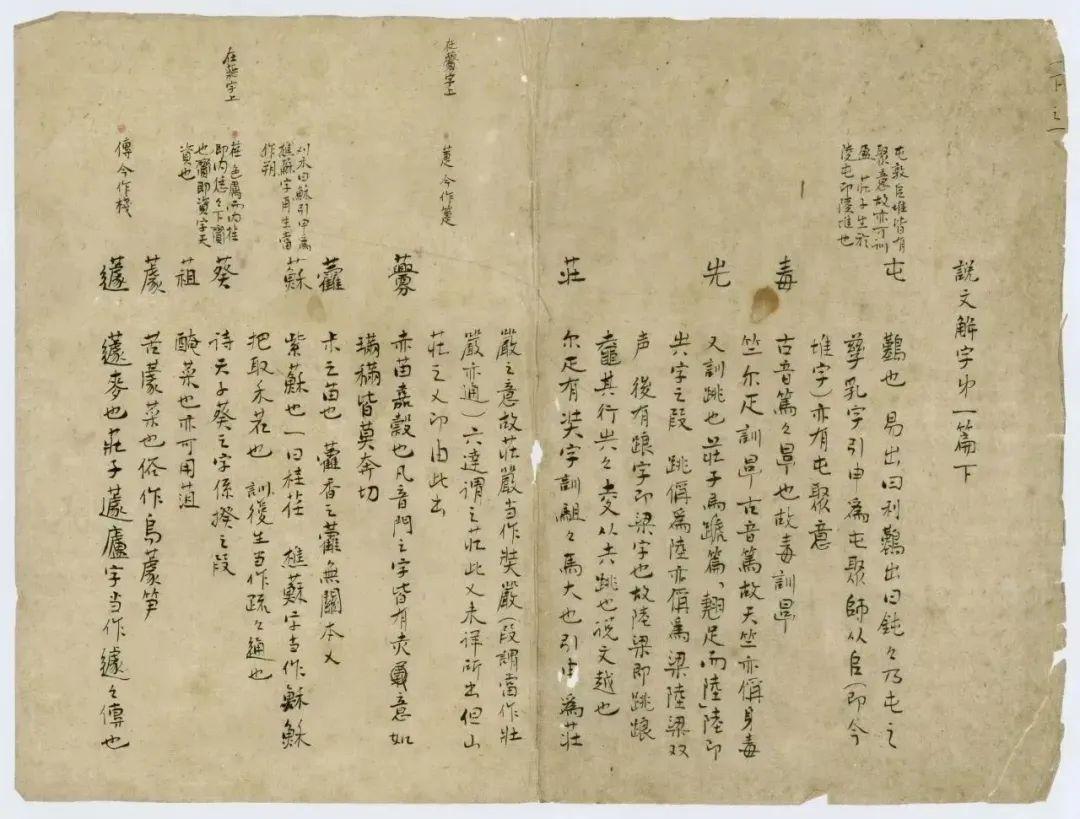 下之一
說文解字弟一篇下
屯敦𠂤堆皆有
聚意故亦可訓
盈 莊子生於
陵屯即陵堆也
屯
囏也 易出曰利囏出曰鈍々乃屯之
孳乳字引申為屯聚師从𠂤(即今
堆字)亦有屯聚意
毒
古音篤々𣆀也故毒訓𣆀
竺尔疋訓𣆀古音篤故天竺亦偁身毒
𡴆
又訓跳也莊子馬蹏篇「翹足而陸」陸即
𡴆字之段 跳偁為陸亦偁為梁陸梁双
声 後有踉字即梁字也故陸梁即跳踉
鼀其行𡴆々 夌从𡴆跳也说文越也
莊
尔疋有奘字訓駔々馬大也引申為莊
嚴之意故莊嚴当作奘嚴(段謂當作壯
嚴亦通)六達謂之莊此义未詳所出但山
莊之义即由此出
在虋字上
䔞今作䔞
虋
赤苗嘉穀也凡音門之字皆有赤意如
璊𥻊皆莫奔切
藿
尗之苗也 藿香之藿無關本义
刈木曰蘇引申為
樵蘇字再生當
作朔
蘇
紫蘇也一曰桂荏 樵蘇字当作穌穌
把取禾若也 訓復生当作疏々通也
在葵字上
荏色厲而內荏
即內恁々下齎
也齎即資字天
資也
葵
诗天子葵之字係揆之段
葅
醃菜也亦可用菹
蘧
苦蘧菜也俗作烏蘧笋
傳今作棧
蘧
蘧麥也莊子蘧廬字当作遽々傳也